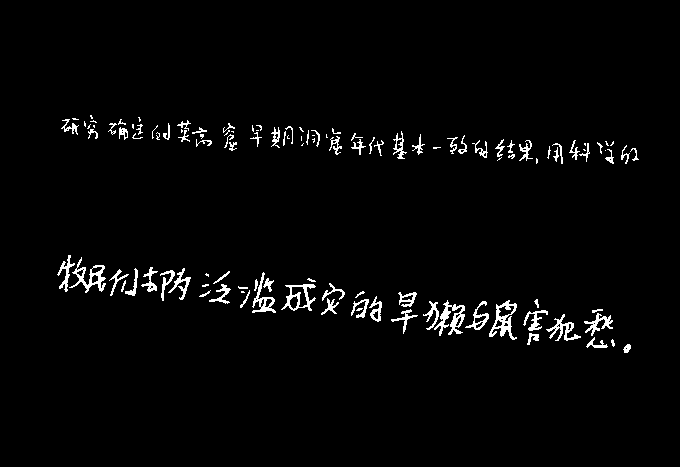 研究确定的莫高窟早期洞窟年代基本一致的结果,用科学的
牧民们却为泛滥成灾的旱獭与鼠害犯愁。